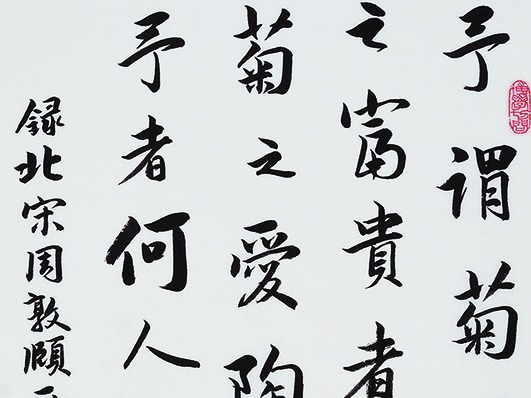 予謂菊
之富貴者
菊之愛陶
予者何人
録北宋周敦頤